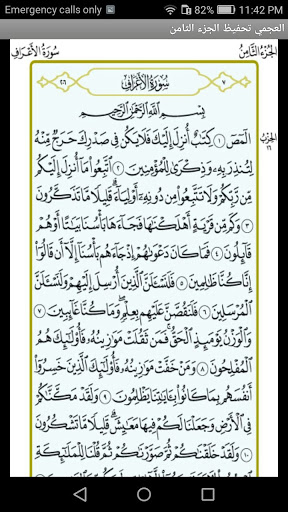 Emergency calls only 11:42 PM
العجمي تحفيظ الجزء الثامن
الجُزْءُ الثَّامِنُ سُورَةُ الأَعْرَافِ
٧ سُورَةُ الأَعْرَافِ ٢٠٦
بِسْمِ اللَّهِ الرَّحْمَٰنِ الرَّحِيمِ
الحِزْب ١٦
الٓمٓصٓ ١ كِتَٰبٌ أُنزِلَ إِلَيْكَ فَلَا يَكُن فِى صَدْرِكَ حَرَجٌ مِّنْهُ
لِتُنذِرَ بِهِۦ وَذِكْرَىٰ لِلْمُؤْمِنِينَ ٢ ٱتَّبِعُوا۟ مَآ أُنزِلَ إِلَيْكُم
مِّن رَّبِّكُمْ وَلَا تَتَّبِعُوا۟ مِن دُونِهِۦٓ أَوْلِيَآءَ ۗ قَلِيلًا مَّا تَذَكَّرُونَ
٣ وَكَم مِّن قَرْيَةٍ أَهْلَكْنَٰهَا فَجَآءَهَا بَأْسُنَا بَيَٰتًا أَوْ هُمْ
قَآئِلُونَ ٤ فَمَا كَانَ دَعْوَىٰهُمْ إِذْ جَآءَهُم بَأْسُنَآ إِلَّآ أَن قَالُوٓا۟
إِنَّا كُنَّا ظَٰلِمِينَ ٥ فَلَنَسْـَٔلَنَّ ٱلَّذِينَ أُرْسِلَ إِلَيْهِمْ وَلَنَسْـَٔلَنَّ
ٱلْمُرْسَلِينَ ٦ فَلَنَقُصَّنَّ عَلَيْهِم بِعِلْمٍ ۖ وَمَا كُنَّا غَآئِبِينَ ٧
وَٱلْوَزْنُ يَوْمَئِذٍ ٱلْحَقُّ ۚ فَمَن ثَقُلَتْ مَوَٰزِينُهُۥ فَأُو۟لَٰٓئِكَ هُمُ
ٱلْمُفْلِحُونَ ٨ وَمَنْ خَفَّتْ مَوَٰزِينُهُۥ فَأُو۟لَٰٓئِكَ ٱلَّذِينَ خَسِرُوٓا۟
أَنفُسَهُم بِمَا كَانُوا۟ بِـَٔايَٰتِنَا يَظْلِمُونَ ٩ وَلَقَدْ مَكَّنَّٰكُمْ
فِى ٱلْأَرْضِ وَجَعَلْنَا لَكُمْ فِيهَا مَعَٰيِشَ ۗ قَلِيلًا مَّا تَشْكُرُونَ
١٠ وَلَقَدْ خَلَقْنَٰكُمْ ثُمَّ صَوَّرْنَٰكُمْ ثُمَّ قُلْنَا لِلْمَلَٰٓئِكَةِ